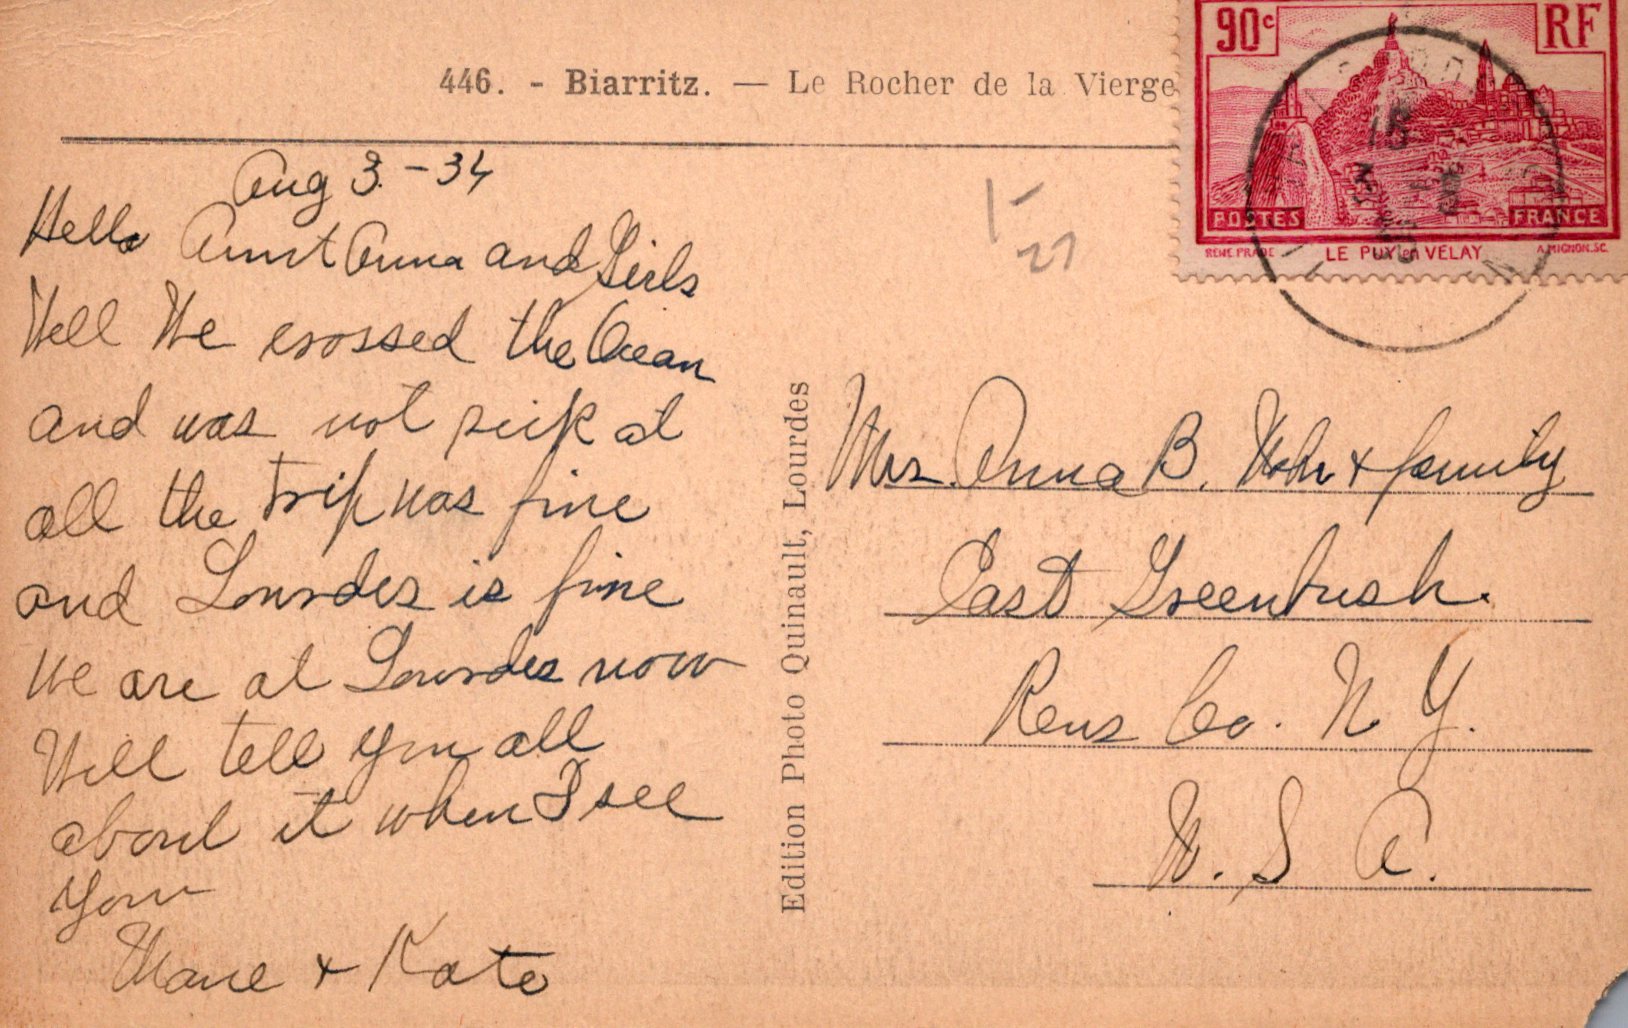 446. - Biarritz. — Le Rocher de la Vierge
90c
RF
POSTES
FRANCE
RENE PRADE
LE PUY en VELAY
A. MIGNON. SC.
Aug 3. - 34
Hello Aunt Anna and Girls
Well We crossed the Ocean
and was not sick at
all the trip was fine
and Lourdes is fine
We are at Lourdes now
Will tell you all
about it when I see
you
& Kate
1-
27
Edition Photo Quinault, Lourdes
Mrs. Anna B. & family
East Greenbush.
Rens Co. N. Y.
U. S. A.